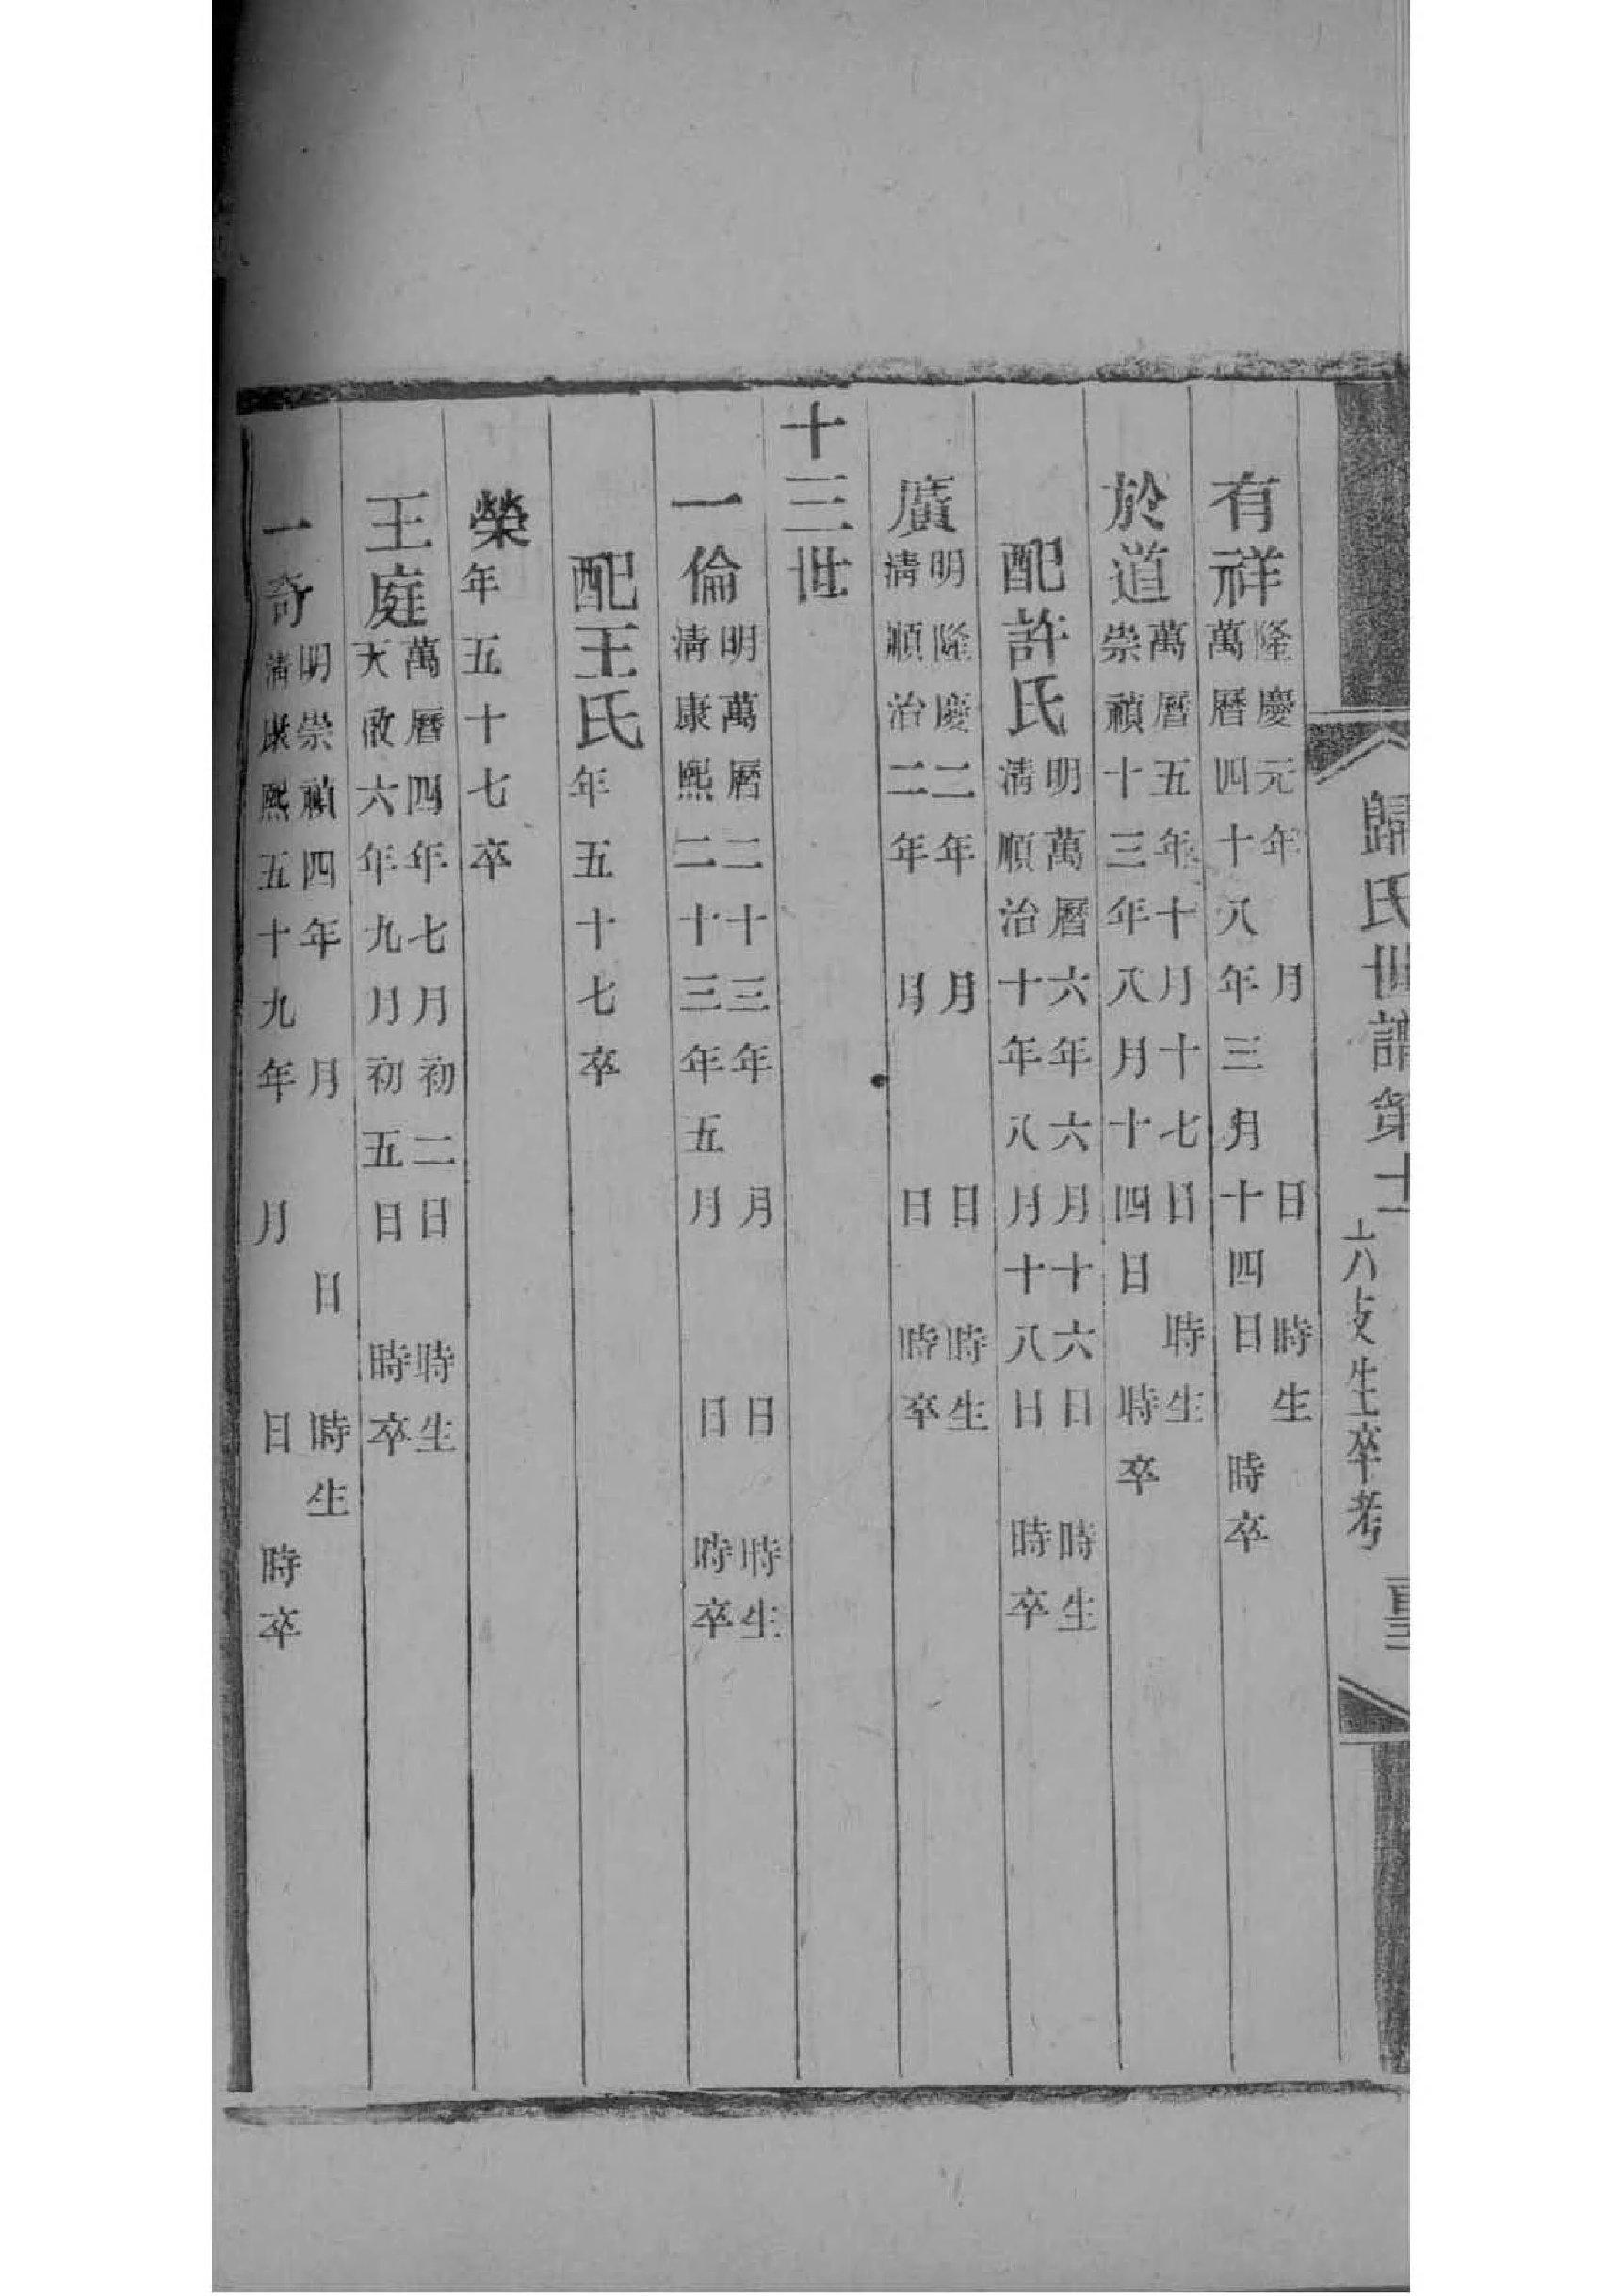 歸氏世譜第
六支生卒考
有祥
隆慶元年 月 日 時生
萬曆四十八年三月十四日 時卒
於道
萬曆五年十月十七日 時生
崇禎十三年八月十四日 時卒
配許氏
明萬曆六年六月十六日 時生
清順治十年八月十八日 時卒
廣
明隆慶二年 月 日 時生
清順治二年 月 日 時卒
十三世
一倫
明萬曆二十三年 月 日 時生
清康熙二十三年五月 日 時卒
配王氏 年五十七卒
榮 年五十七卒
王庭
萬曆四年七月初二日 時生
天啟六年九月初五日 時卒
一奇
明崇禎四年 月 日 時生
清康熙五十九年 月 日 時卒